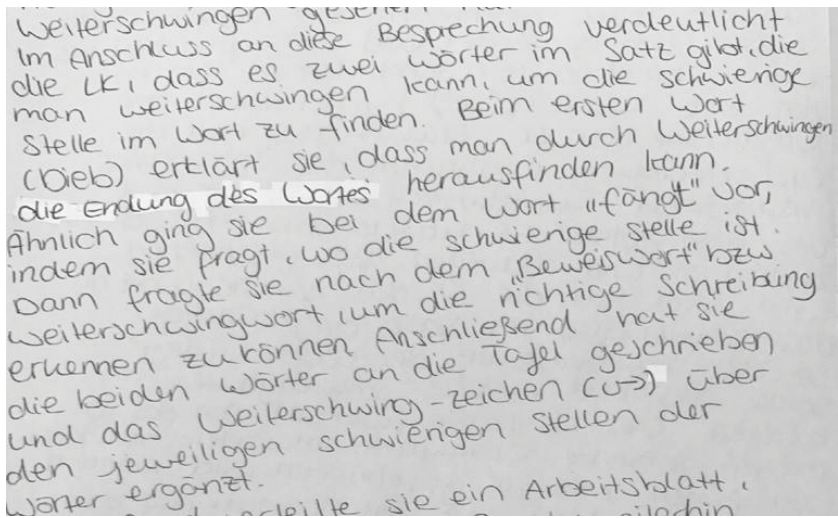 Weiterschwingen
Im Anschluss an diese Besprechung verdeutlicht
die LK, dass es zwei Wörter im Satz gibt, die
man weiterschwingen kann, um die schwierige
Stelle im Wort zu finden. Beim ersten Wort
(Dieb) erklärt sie, dass man durch Weiterschwingen
die Endung des Wortes herausfinden kann.
Ähnlich ging sie bei dem Wort "fängt" vor,
indem sie fragt, wo die schwierige Stelle ist.
Dann fragte sie nach dem "Beweiswort" bzw
weiterschwingwort, um die richtige Schreibung
erkennen zu können. Anschließend hat sie
die beiden Wörter an die Tafel geschrieben
und das Weiterschwing-zeichen (∪→) über
den jeweiligen schwierigen Stellen der
Wörter ergänzt.
sie ein Arbeitsblatt,